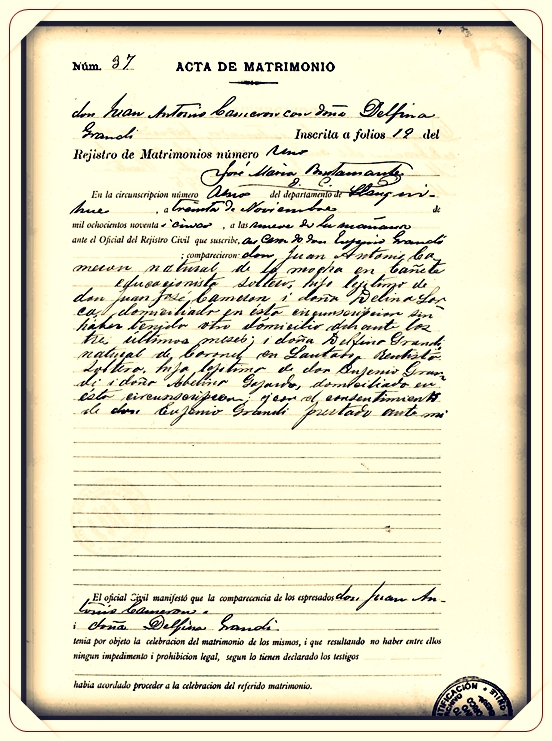 Núm. 37 ACTA DE MATRIMONIO
don Juan Antonio Cameron con doña Delfina
Grandi Inscrita a folios 19 del
Rejistro de Matrimonios número Uno
José Maria Bustamante
O. C.
En la circunscripcion número Uno del departamento de Llanqui-
hue, a treinta de Noviembre de
mil ochocientos noventa i cinco, a las nueve de la mañana
ante el Oficial del Rejistro Civil que suscribe, en casa de don Eujenio Grandi
; comparecieron: don Juan Antonio Ca-
meron natural de la mocha en Cañete
educacionista soltero, hijo lejitimo de
don Juan José Cameron i doña Delina
domiciliado en esta circunscripcion sin
haber tenido otro domicilio durante los
tres ultimos meses; i doña Delfina Grandi,
natural de Coronel en Lautaro
soltera, hija lejitima de don Eujenio Gran-
di i doña Abelina Gajardo, domiciliada en
esta circunscripcion; i con el consentimiento
de don Eujenio Grandi prestado ante mi
El oficial Civil manifestó que la comparecencia de los espresados don Juan An-
tonio Cameron
i doña Delfina Grandi
tenia por objeto la celebracion del matrimonio de los mismos, i que resultando no haber entre ellos
ningun impedimento i prohibicion legal, segun lo tienen declarado los testigos
habia acordado proceder a la celebracion del referido matrimonio.